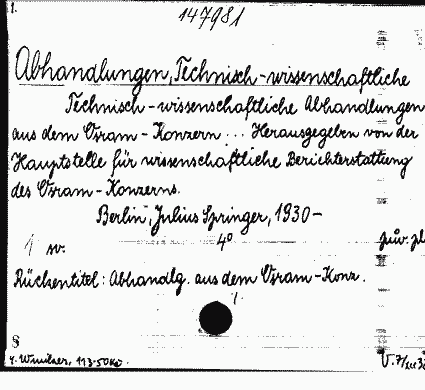 1.
147981
Abhandlungen, Technisch-wissenschaftliche
Technisch-wissenschaftliche Abhandlungen
aus dem Osram-Konzern ... Herausgegeben von der
Hauptstelle für wissenschaftliche Berichterstattung
des Osram-Konzerns.
Berlin, Julius Springer, 1930-
1 sv.
4°
Rückentitel: Abhandlg. aus dem Osram-Konz.
8